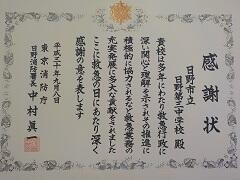 感謝状
日野市立
日野第三中学校 殿
貴校は多年にわたり救急行政に
深い関心と理解を示されその推進に
積極的に協力されるなど救急業務の
充実発展に多大な貢献をされました
ここに救急の日にあたり深く
感謝の意を表します
平成二十年九月八日
東京消防庁
日野消防署長 中村眞一